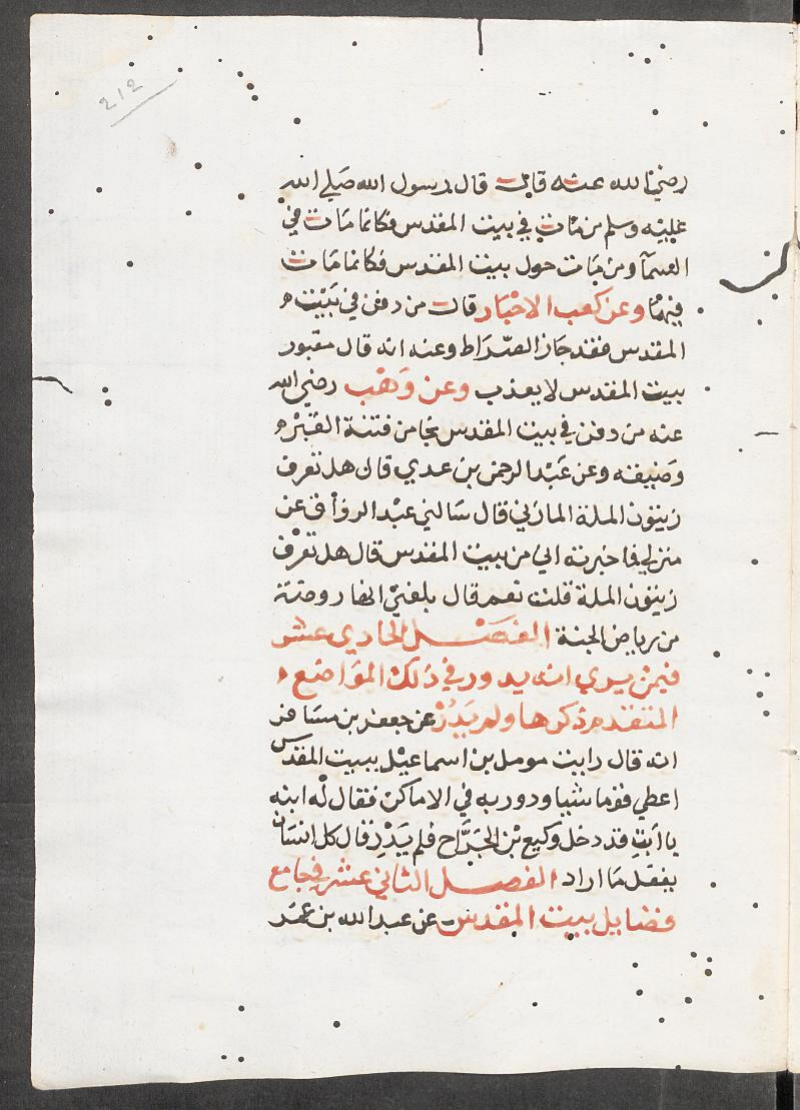 212
رضي الله عنه قال قال رسول الله صلي الله
عليه وسلم من مات في بيت المقدس فكانما مات في
السمآ ومن مات حول بيت المقدس فكانما مات
فيها وعن كعب الاحبار قال من دفن في بيت
المقدس فقد جاز الصراط وعنه انه قال مقبور
بيت المقدس لا يعذب وعن وهب رضي الله
عنه من دفن في بيت المقدس نجا من فتنة القبر
وضيقه وعن عبد الرحمن بن عدي قال هل تعرف
زيتون الملة المازني قال سالني عبد الرواف عن
منزلي فاخبرته اني من بيت المقدس قال هل تعرف
زيتون الملة قلت نعم قال بلغني انها روضة
من رياض الجنة الفصل الحادي عشر
فيمن يري انه يدور في ذلك المواضع
المتقدم ذكرها ولم يدر عن جعفر بن مسافر
انه قال رايت مومل بن اسماعيل ببيت المقدس
اعطي قوما شيا ودور به في الاماكن فقال له ابنه
يا ابت قد دخل وكيع بن الجراح فلم يدر قال كل انسان
يفعل ما اراد الفصل الثاني عشر في جامع
فضايل بيت المقدس عن عبد الله بن عمر